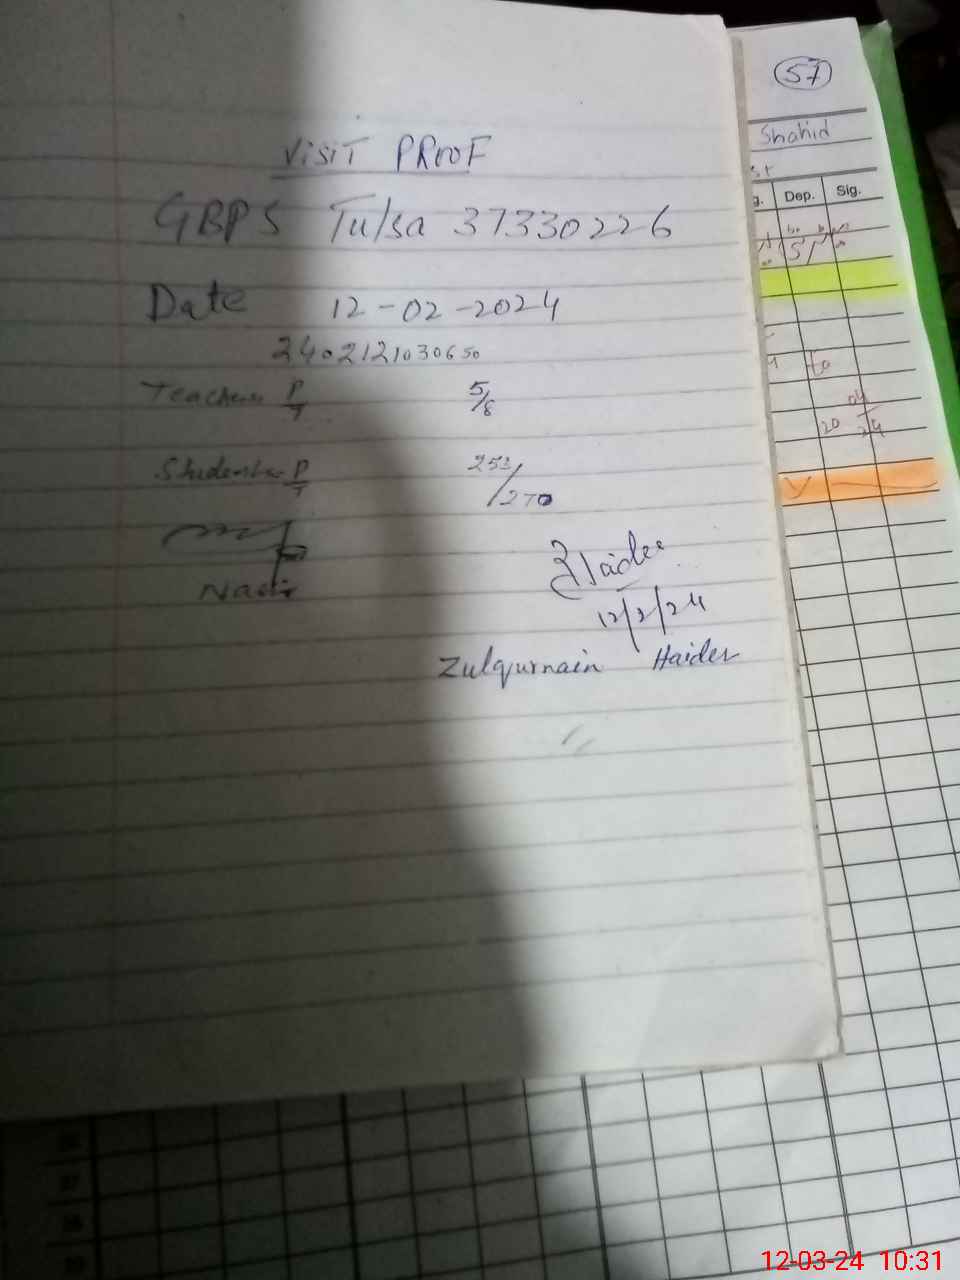 VISIT PROOF
GBPS Tulsa 37330226
Date 12-02-2024
2402121030650
Teachers P/T 5/8
Students P/T 253/270
Nadir
Haider
12/2/24
Zulqurnain Haider
57
Shahid
st
g. Dep. Sig.
to
04
20 24
12-03-24 10:31